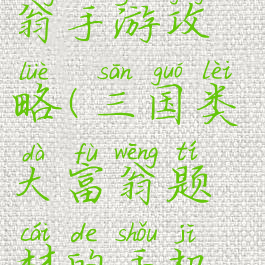 翁手游攻
lüè sān guó lèi
略(三国类
dà fù wēng tí
大富翁题
cái de shǒu jī
材的手机